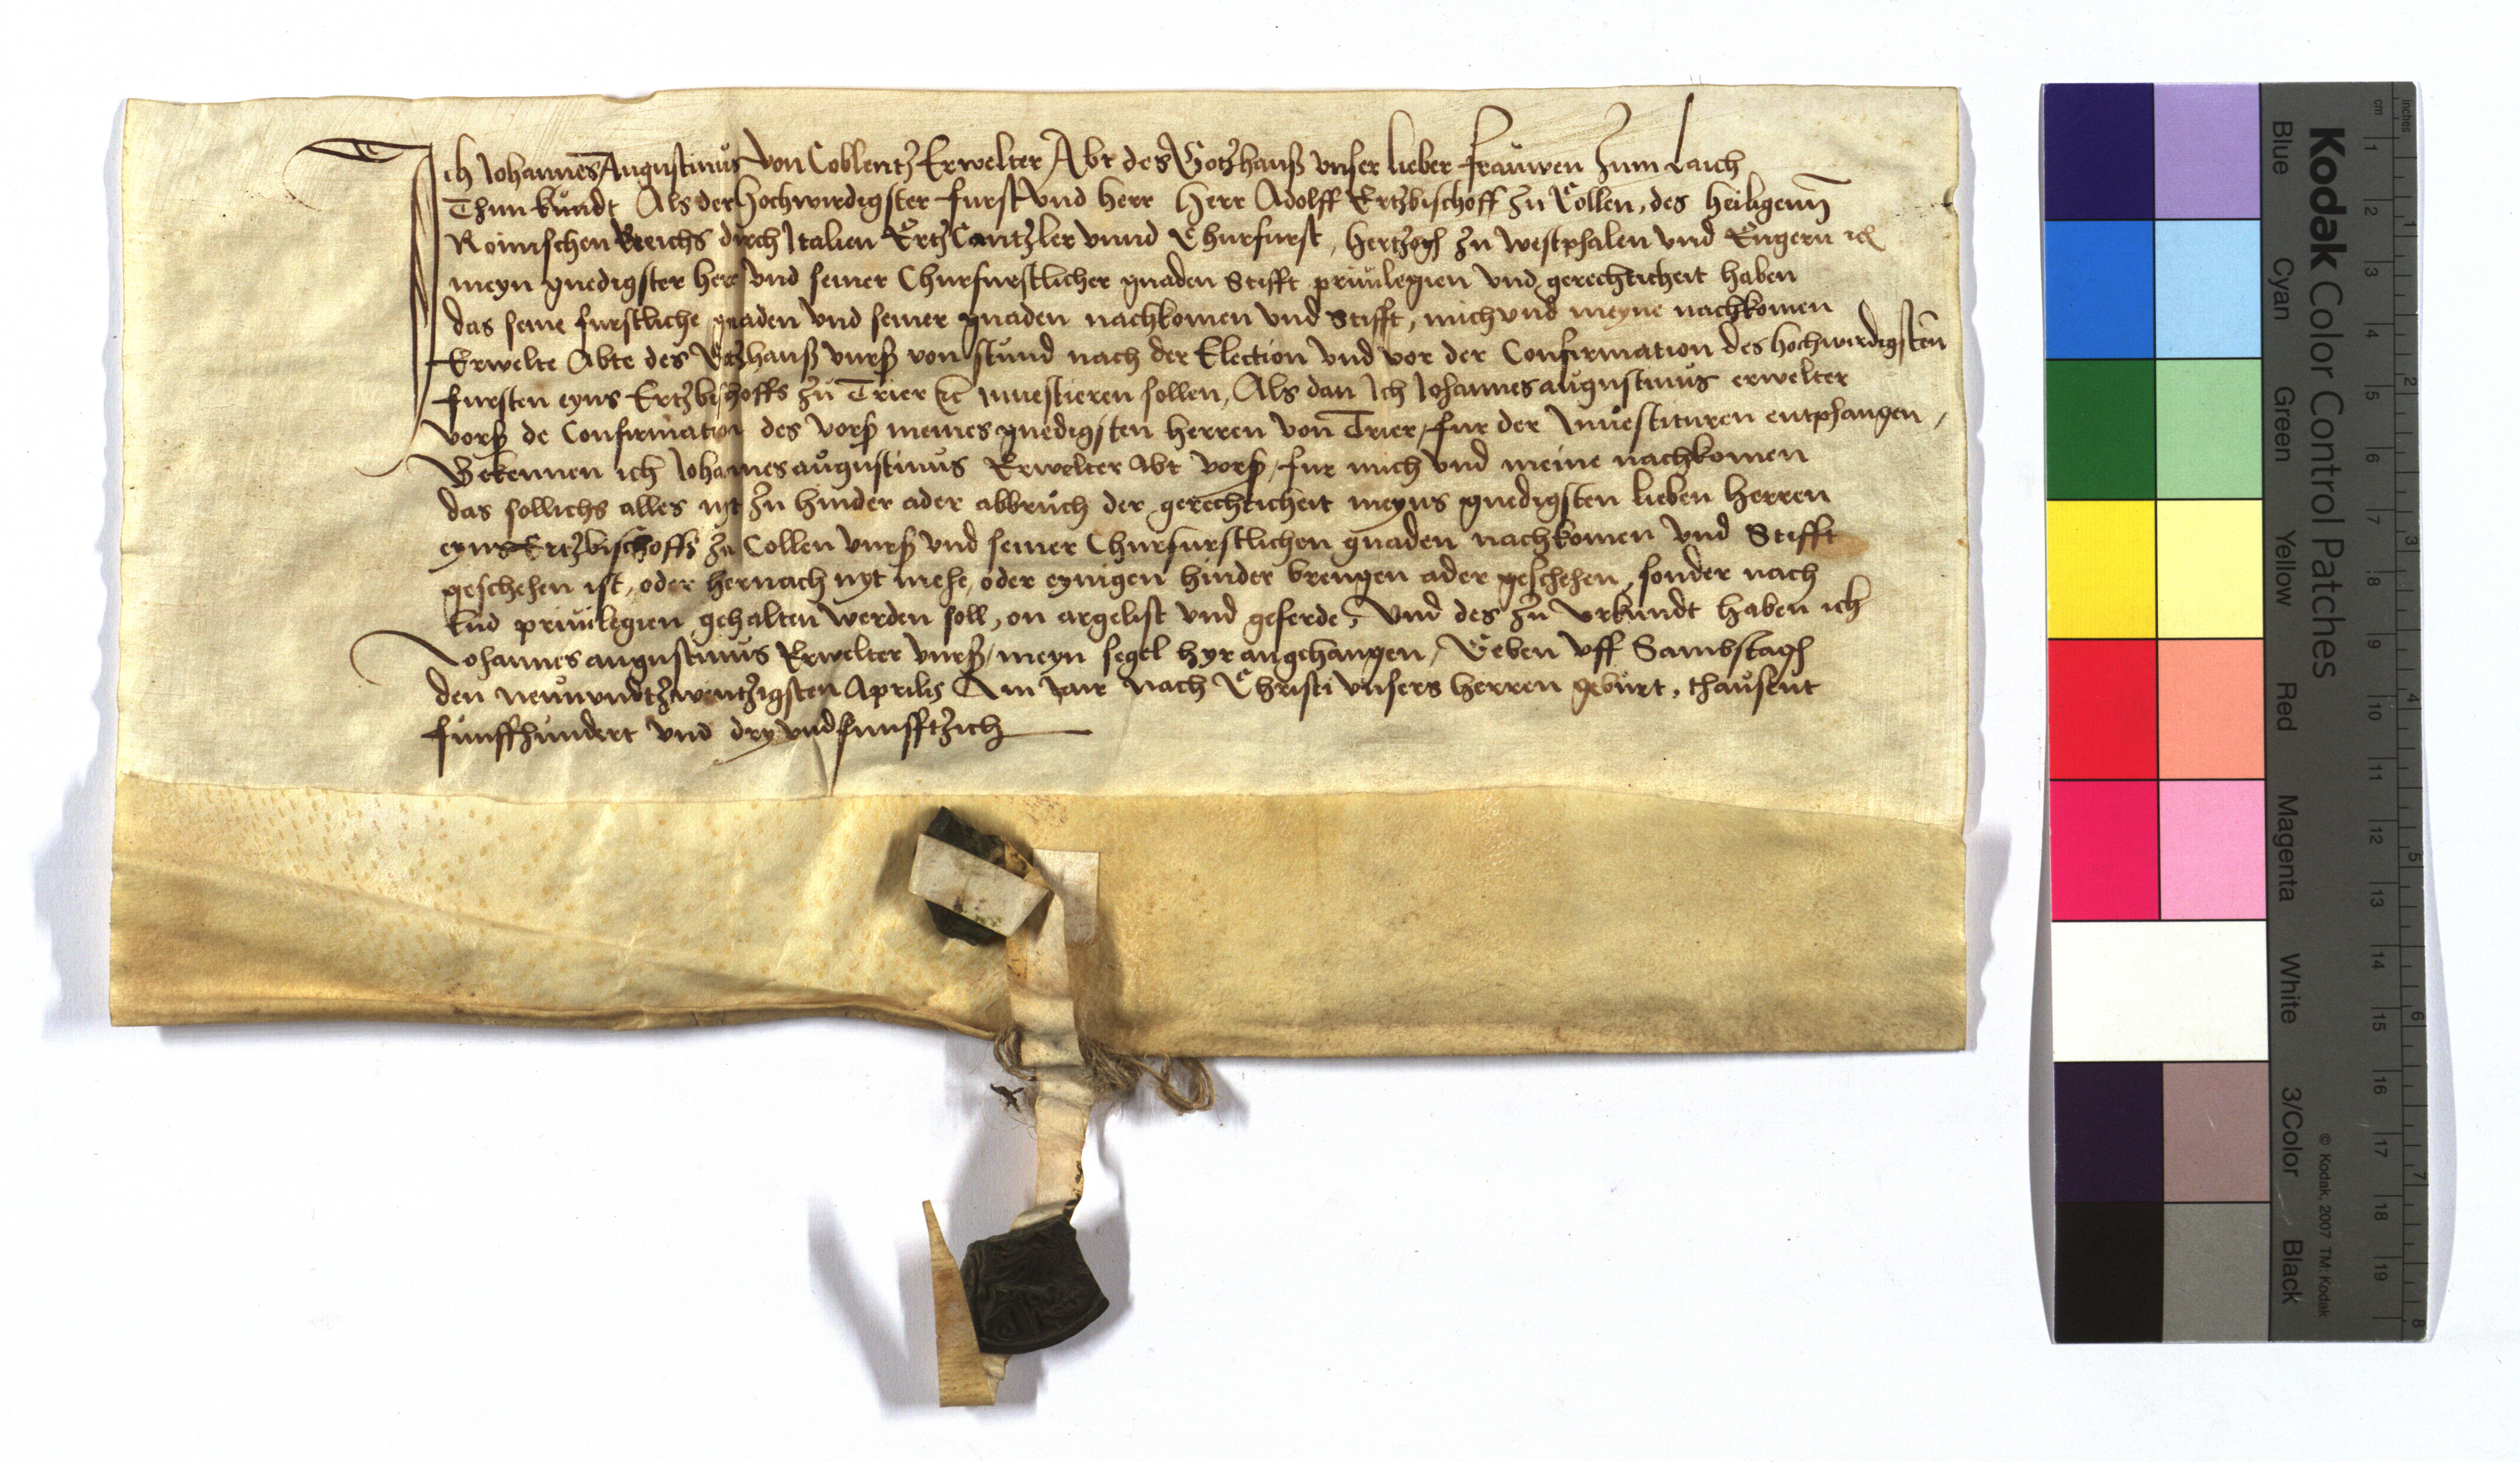 Ich Johannes Augustinus von Coblentz Erwelter Abt des Gotzhauß unser lieber frauwen zum Laich
Thun kundt Als der hochwirdigster furst und herr herr Adolff Ertzbischoff zu Collen, des heiligenn
Roimschen Reichs durch Italien Ertz Cantzler unnd Churfurst, hertzogh zu westphalen und Engern rc
meyn gnedigster herr und seiner Churfurstlicher gnaden Stifft privilegien und gerechticheit haben
das seine furstliche gnaden und seiner gnaden nachkomen und Stifft, mich und meyne nachkomen
Erwelte Abte des Gotzhauß vurß von stund nach der Election und vor der Confirmation des hochwirdigsten
fursten eyns Ertzbischoffs zu Trier rc investieren sollen, Als dan Ich Johannes augustinus erwelter
vorß de Confirmation des vorß meines gnedigsten herren von Trier, fur der Investituren entphangen,
Bekennen ich Johannes augustinus Erwelter Abt vorß, fur mich und meine nachkomen
das sollichs alles nyt zu hinder ader abbruch der gerechticheit meyns gnedigsten lieben herren
eyns Ertzbischoffs zu Collen vurß und seiner Churfurstlichen gnaden nachkomen und Stifft
geschehen ist, oder hernach nyt mehe, oder eynigen hinder brengen ader geschehen, sonder nach
lud privilegien gehalten werden soll, on argelist und geferde, Und des zu urkundt haben ich
Johannes augustinus Erwelter vurß, meyn segel hyr angehangen, Geben uff Sambstagh
den neunundtzwentzigsten Aprilis Am Jair nach Christi unsers herren geburt, thausent
funffhundert und dry und funfftzich
Kodak Color Control Patches
Blue Cyan Green Yellow Red Magenta White 3/Color Black
© Kodak, 2007 TM: Kodak
cm 1 2 3 4 5 6 7 8 9 10 11 12 13 14 15 16 17 18 19
inches 1 2 3 4 5 6 7 8